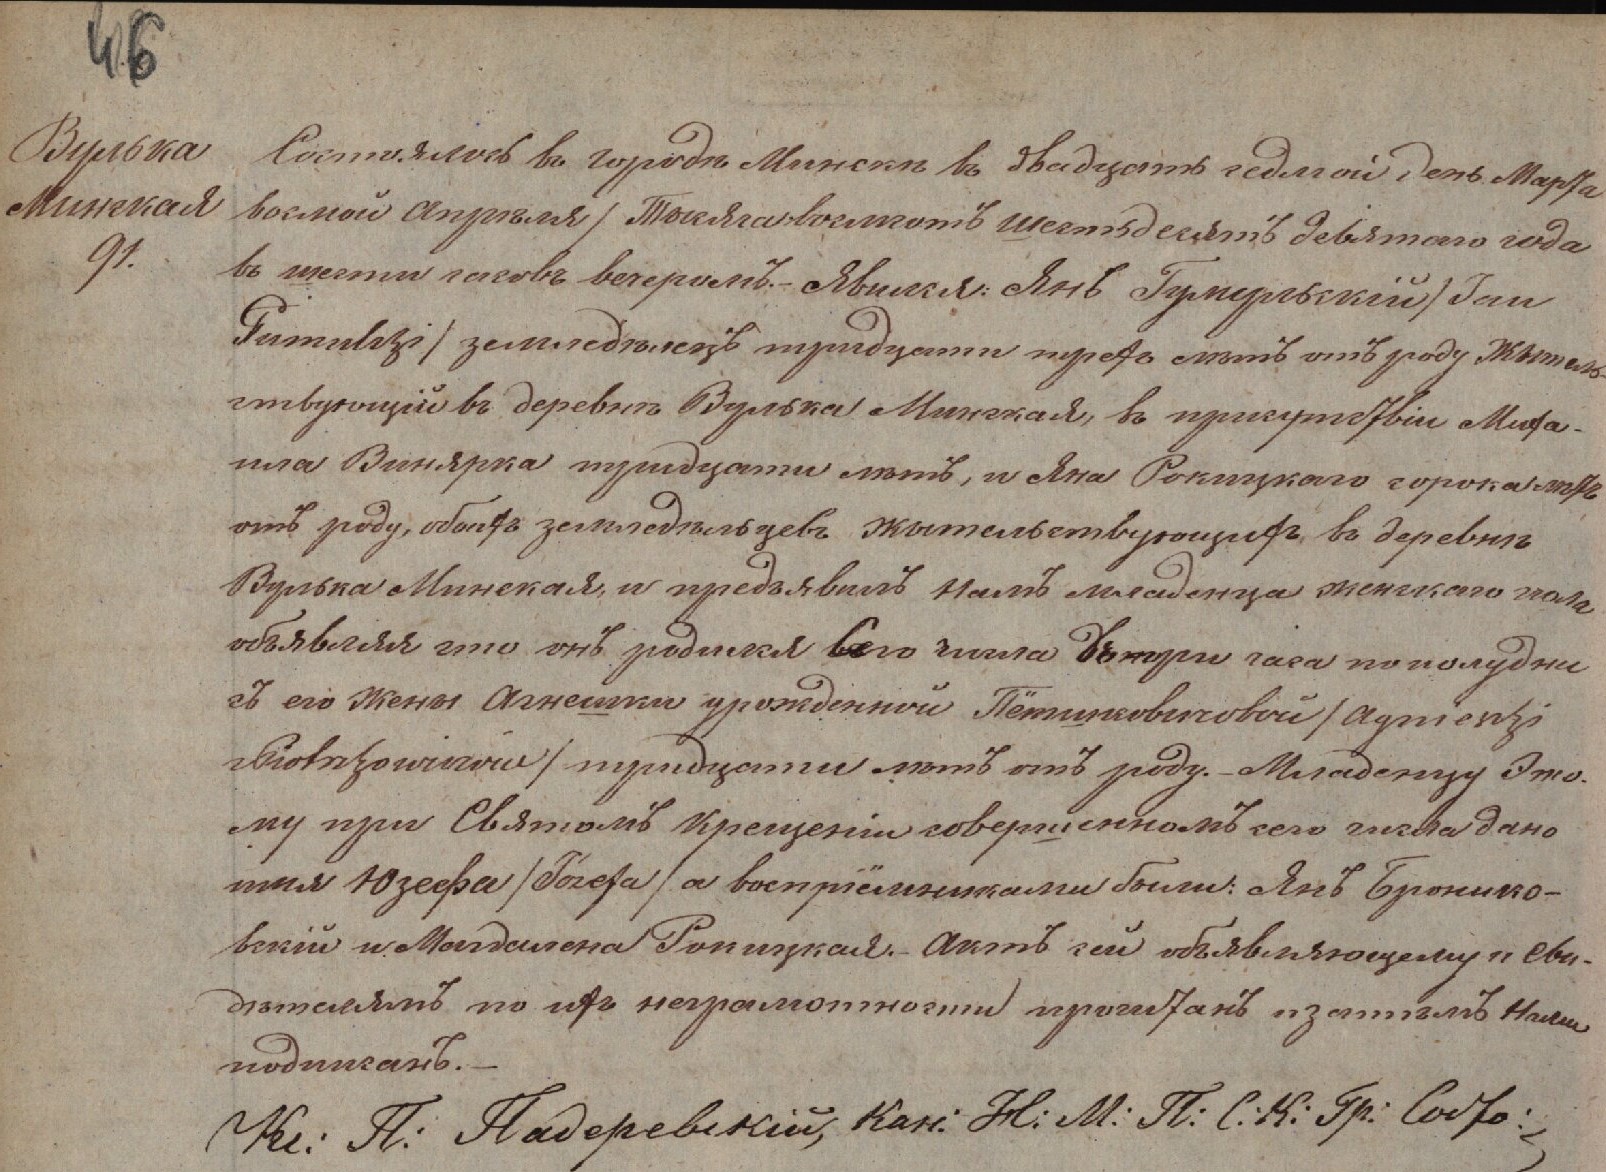 46
Вулька
Минская
91.
Состоялось въ городѣ Минскѣ въ двадцать седмой день Марта
восмой Апрѣля / Тысяча восмсотъ шестьдесятъ девятаго года
въ шести часовъ вечеромъ. – Явился: Янъ Гумульскій / Jan
Gumulski / земледѣлецъ тридцати трехъ лѣтъ отъ роду жытель-
ствующій въ деревнѣ Вулька Минская, въ присутствіи Миха-
ила Винярка тридцати лѣтъ, и Яна Рокицкаго сорока лѣтъ
отъ роду, обоихъ земледѣльцевъ жытельствующихъ въ деревнѣ
Вулька Минская, и предъявилъ намъ младенца женскаго пола
объявляя что онъ родился сего числа въ три часа пополудни
съ его жены Агнешки урожденной Пётшковичовой / Agnieszki
Piotrzkowiczow / тридцати лѣтъ отъ роду. – Младенцу Это-
му при Святомъ Крещеніи совершенномъ сего числа дано
имя Юзефа / Józefa / а воспріёмниками были: Янъ Бронико-
вскій и Магдалена Рокицкая. – Актъ сей объявляющему и Сви-
дѣтелямъ по ихъ неграмотности прочитанъ изатѣмъ Нами
подписанъ. –
Кс: П: Падеревскій, Кан: Н: М: П: С: К: Гр: Сост: